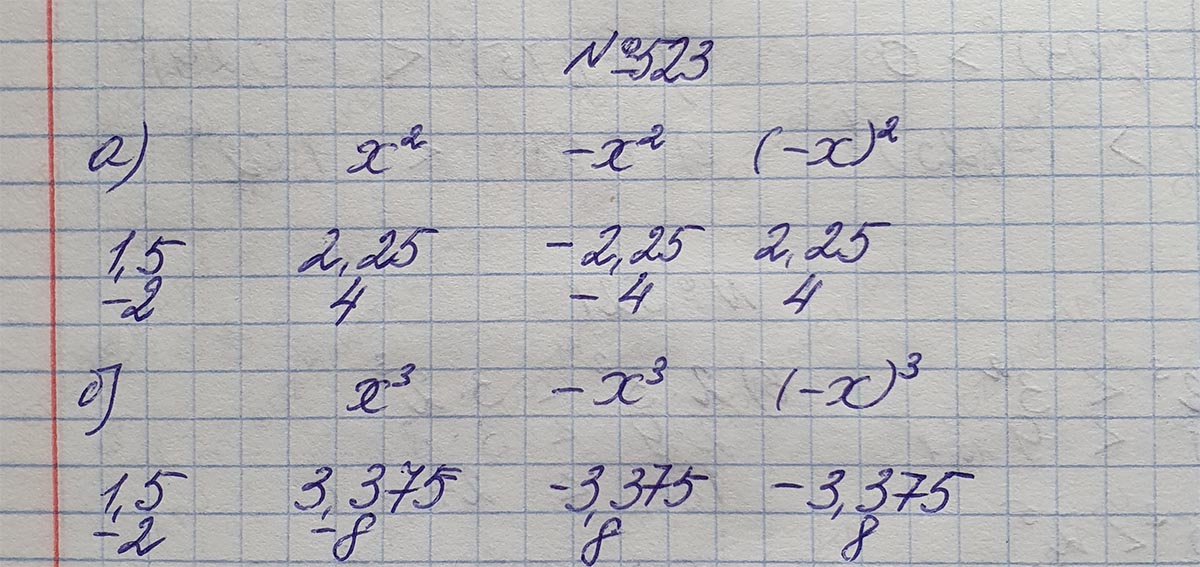 №523
а) x² -x² (-x)²
1,5 2,25 -2,25 2,25
-2 4 -4 4
б) x³ -x³ (-x)³
1,5 3,375 -3,375 -3,375
-2 -8 8 8